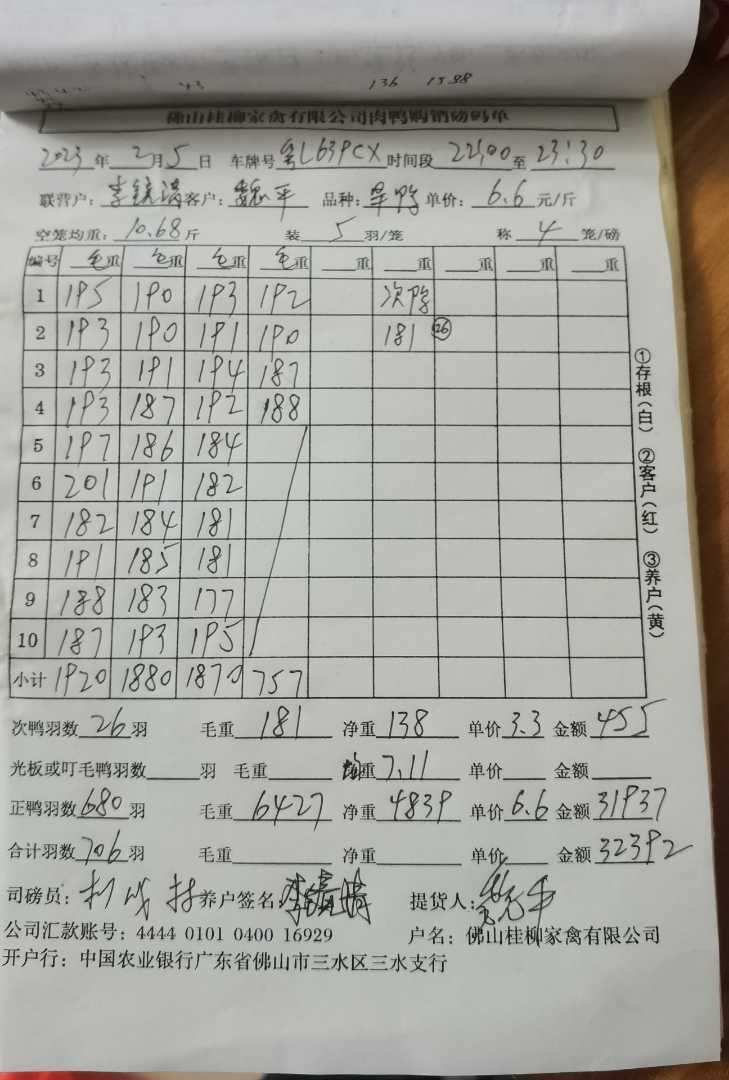 136 1598
佛山桂柳家禽有限公司肉鸭购销磅码单
2023年2月5日 车牌号粤L639CX时间段22:00至23:30
联营户:李镜清客户:魏平 品种:旱鸭单价:6.6元/斤
空笼均重:10.68斤 装5羽/笼 称4笼/磅
编号 毛重 毛重 毛重 毛重 重 重 重 重 重
1 195 190 193 192 次鸭
2 193 190 191 190 181 26
3 193 191 194 187
4 193 187 192 188
5 197 186 184
6 201 191 182
7 182 184 181
8 191 185 181
9 188 183 177
10 187 193 195
小计 1920 1880 1870 757
①存根(白) ②客户(红) ③养户(黄)
次鸭羽数26羽 毛重181 净重138 单价3.3 金额455
光板或叮毛鸭羽数 羽 毛重 均重7.11 单价 金额
正鸭羽数680羽 毛重6427 净重4839 单价6.6 金额31937
合计羽数706羽 毛重 净重 单价 金额32392
司磅员: 养户签名: 提货人:
公司汇款账号:4444 0101 0400 16929 户名:佛山桂柳家禽有限公司
开户行:中国农业银行广东省佛山市三水区三水支行